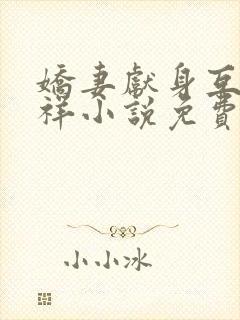 嬌妻獻身互
祥小說免費
小小冰